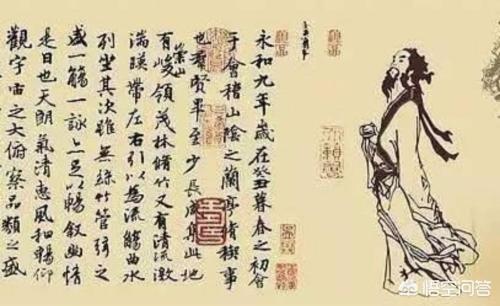 永和九年歲在癸丑暮春之初會
于會稽山陰之蘭亭脩稧事
也羣賢畢至少長咸集此地
有崇山峻領茂林脩竹又有清流激
湍暎帶左右引以為流觴曲水
列坐其次雖無絲竹管弦之
盛一觴一詠亦足以暢敘幽情
是日也天朗氣清惠風和暢仰
觀宇宙之大俯察品類之盛
悟空问答